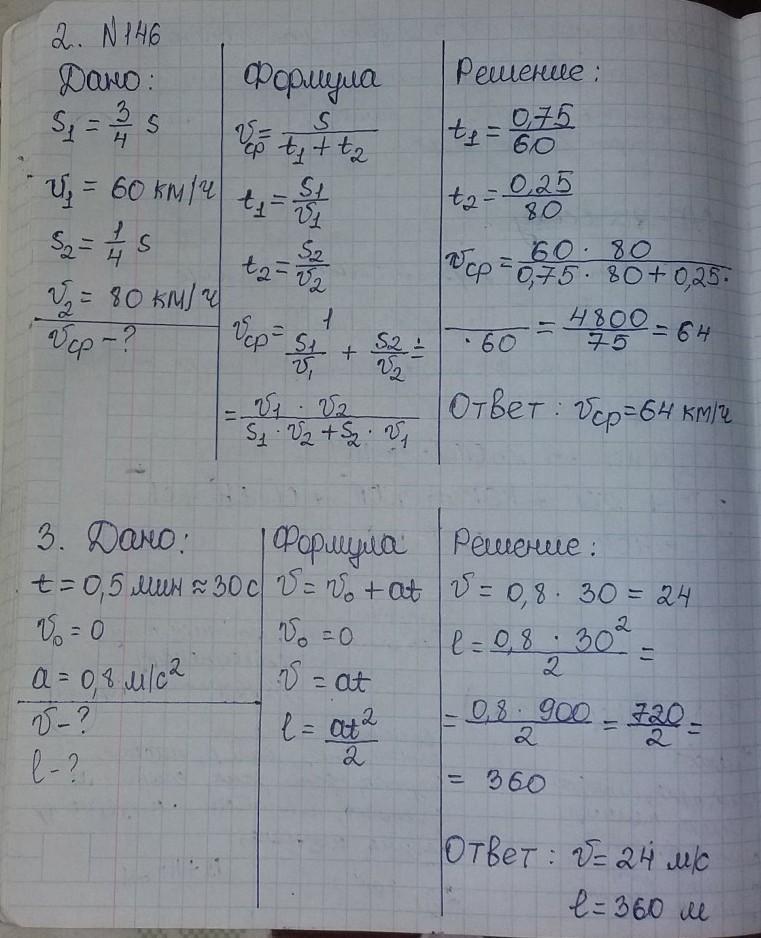 2. N146
Дано:
S₁ = 3/4 S
v₁ = 60 км/ч
S₂ = 1/4 S
v₂ = 80 км/ч
vср - ?
Формула
vср = S/(t₁ + t₂)
t₁ = S₁/v₁
t₂ = S₂/v₂
vср = 1/(S₁/v₁ + S₂/v₂) =
= (v₁ · v₂)/(S₁ · v₂ + S₂ · v₁)
Решение:
t₁ = 0,75/60
t₂ = 0,25/80
vср = (60 · 80)/(0,75 · 80 + 0,25 ·
· 60) = 4800/75 = 64
Ответ: vср = 64 км/ч
3. Дано:
t = 0,5 мин ≈ 30 с
v₀ = 0
a = 0,8 м/с²
v - ?
l - ?
Формула
v = v₀ + at
v₀ = 0
v = at
l = at²/2
Решение:
v = 0,8 · 30 = 24
l = (0,8 · 30²)/2 =
= (0,8 · 900)/2 = 720/2 =
= 360
Ответ: v = 24 м/с
l = 360 м